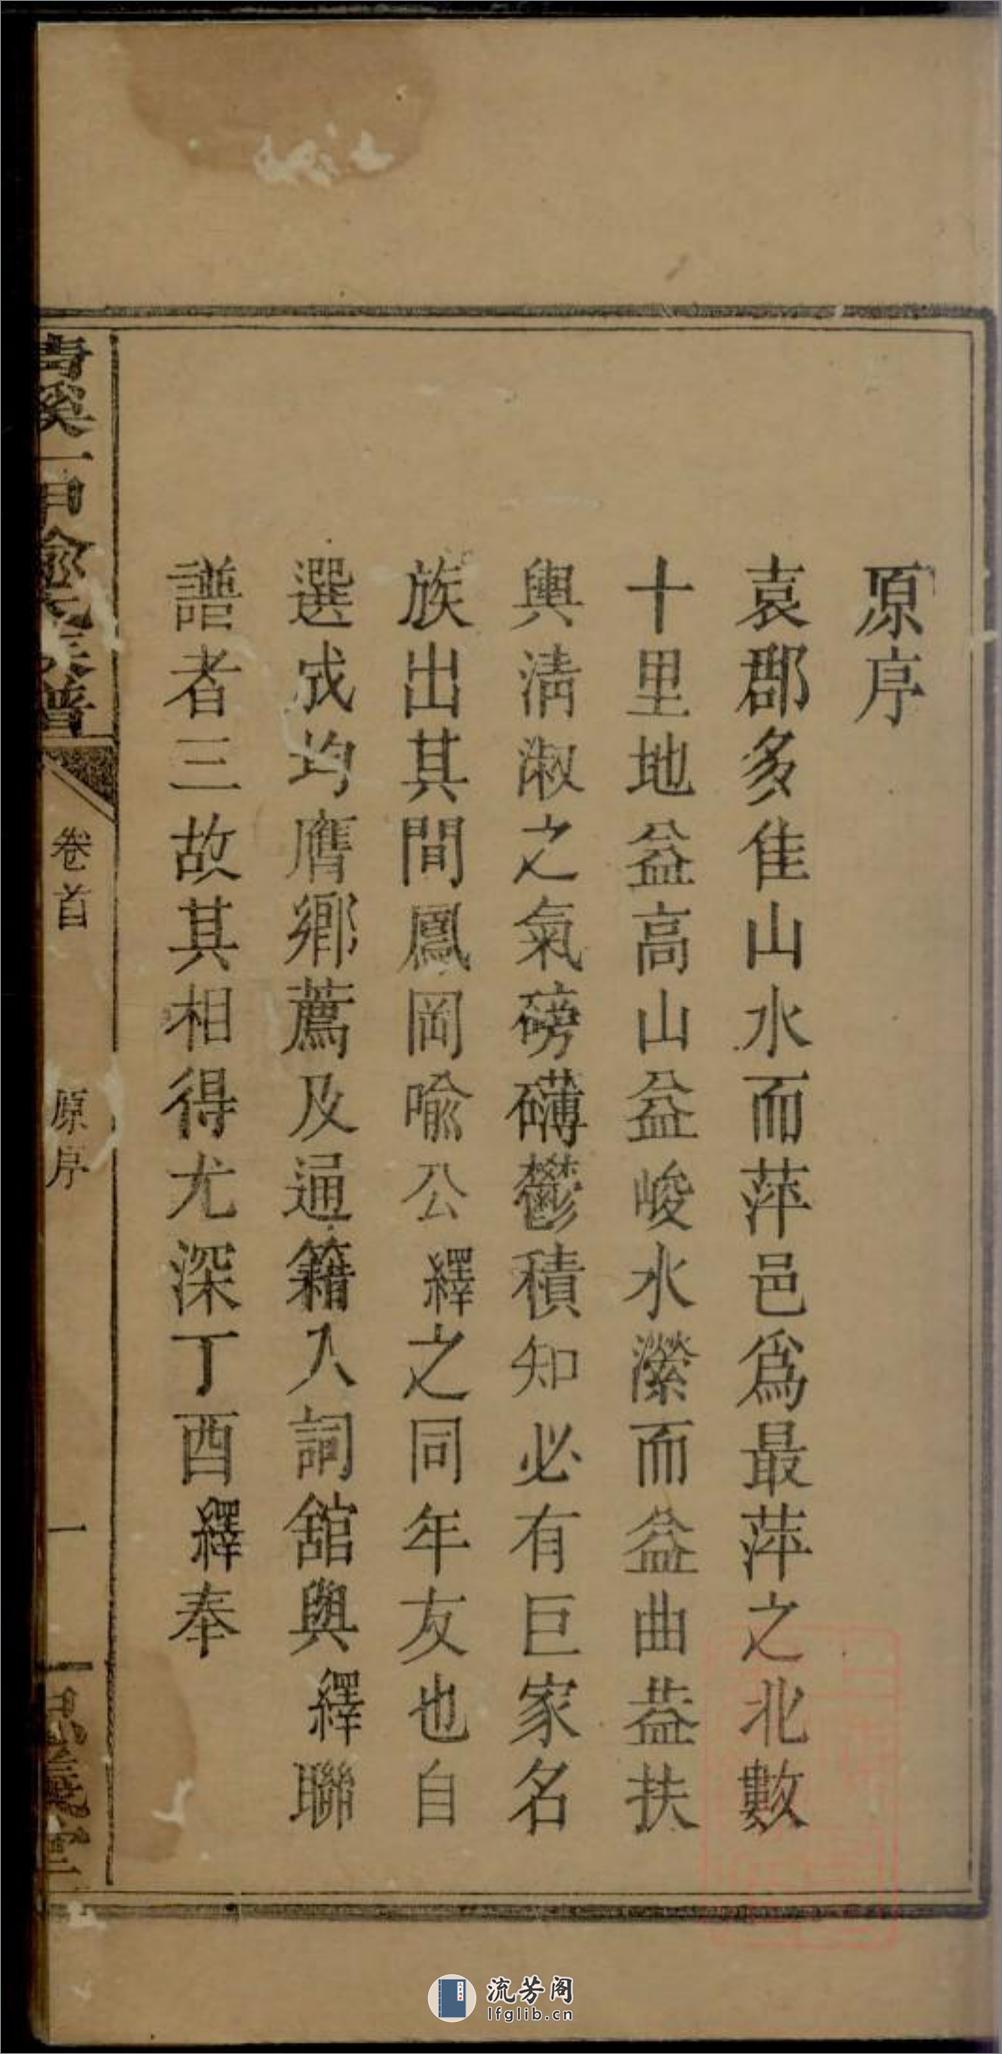 原序
袁郡多佳山水而萍邑爲最萍之北數
十里地益高山益峻水瀠而益曲益扶
輿清淑之氣磅礴鬱積知必有巨家名
族出其間鳳岡喻公繹之同年友也自
選成均膺鄉薦及通籍入詞舘與繹聯
譜者三故其相得尤深丁酉繹奉
卷首
原序
一
流芳阁
lfglib.cn